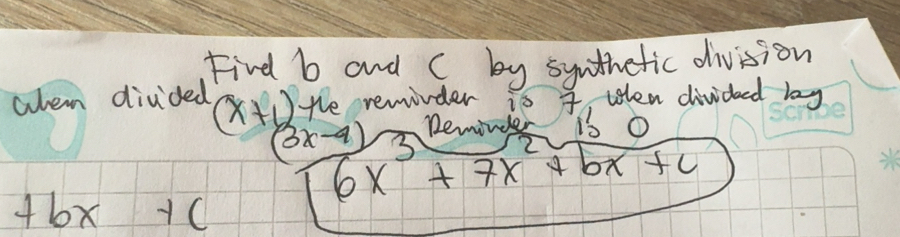 Find b and c by synthetic division
when divided (x+1) the reminder is 7 when divided by
Scribe
(3x-4) Reminder is 0
6x³ + 7x² + bx + c
+bx +c